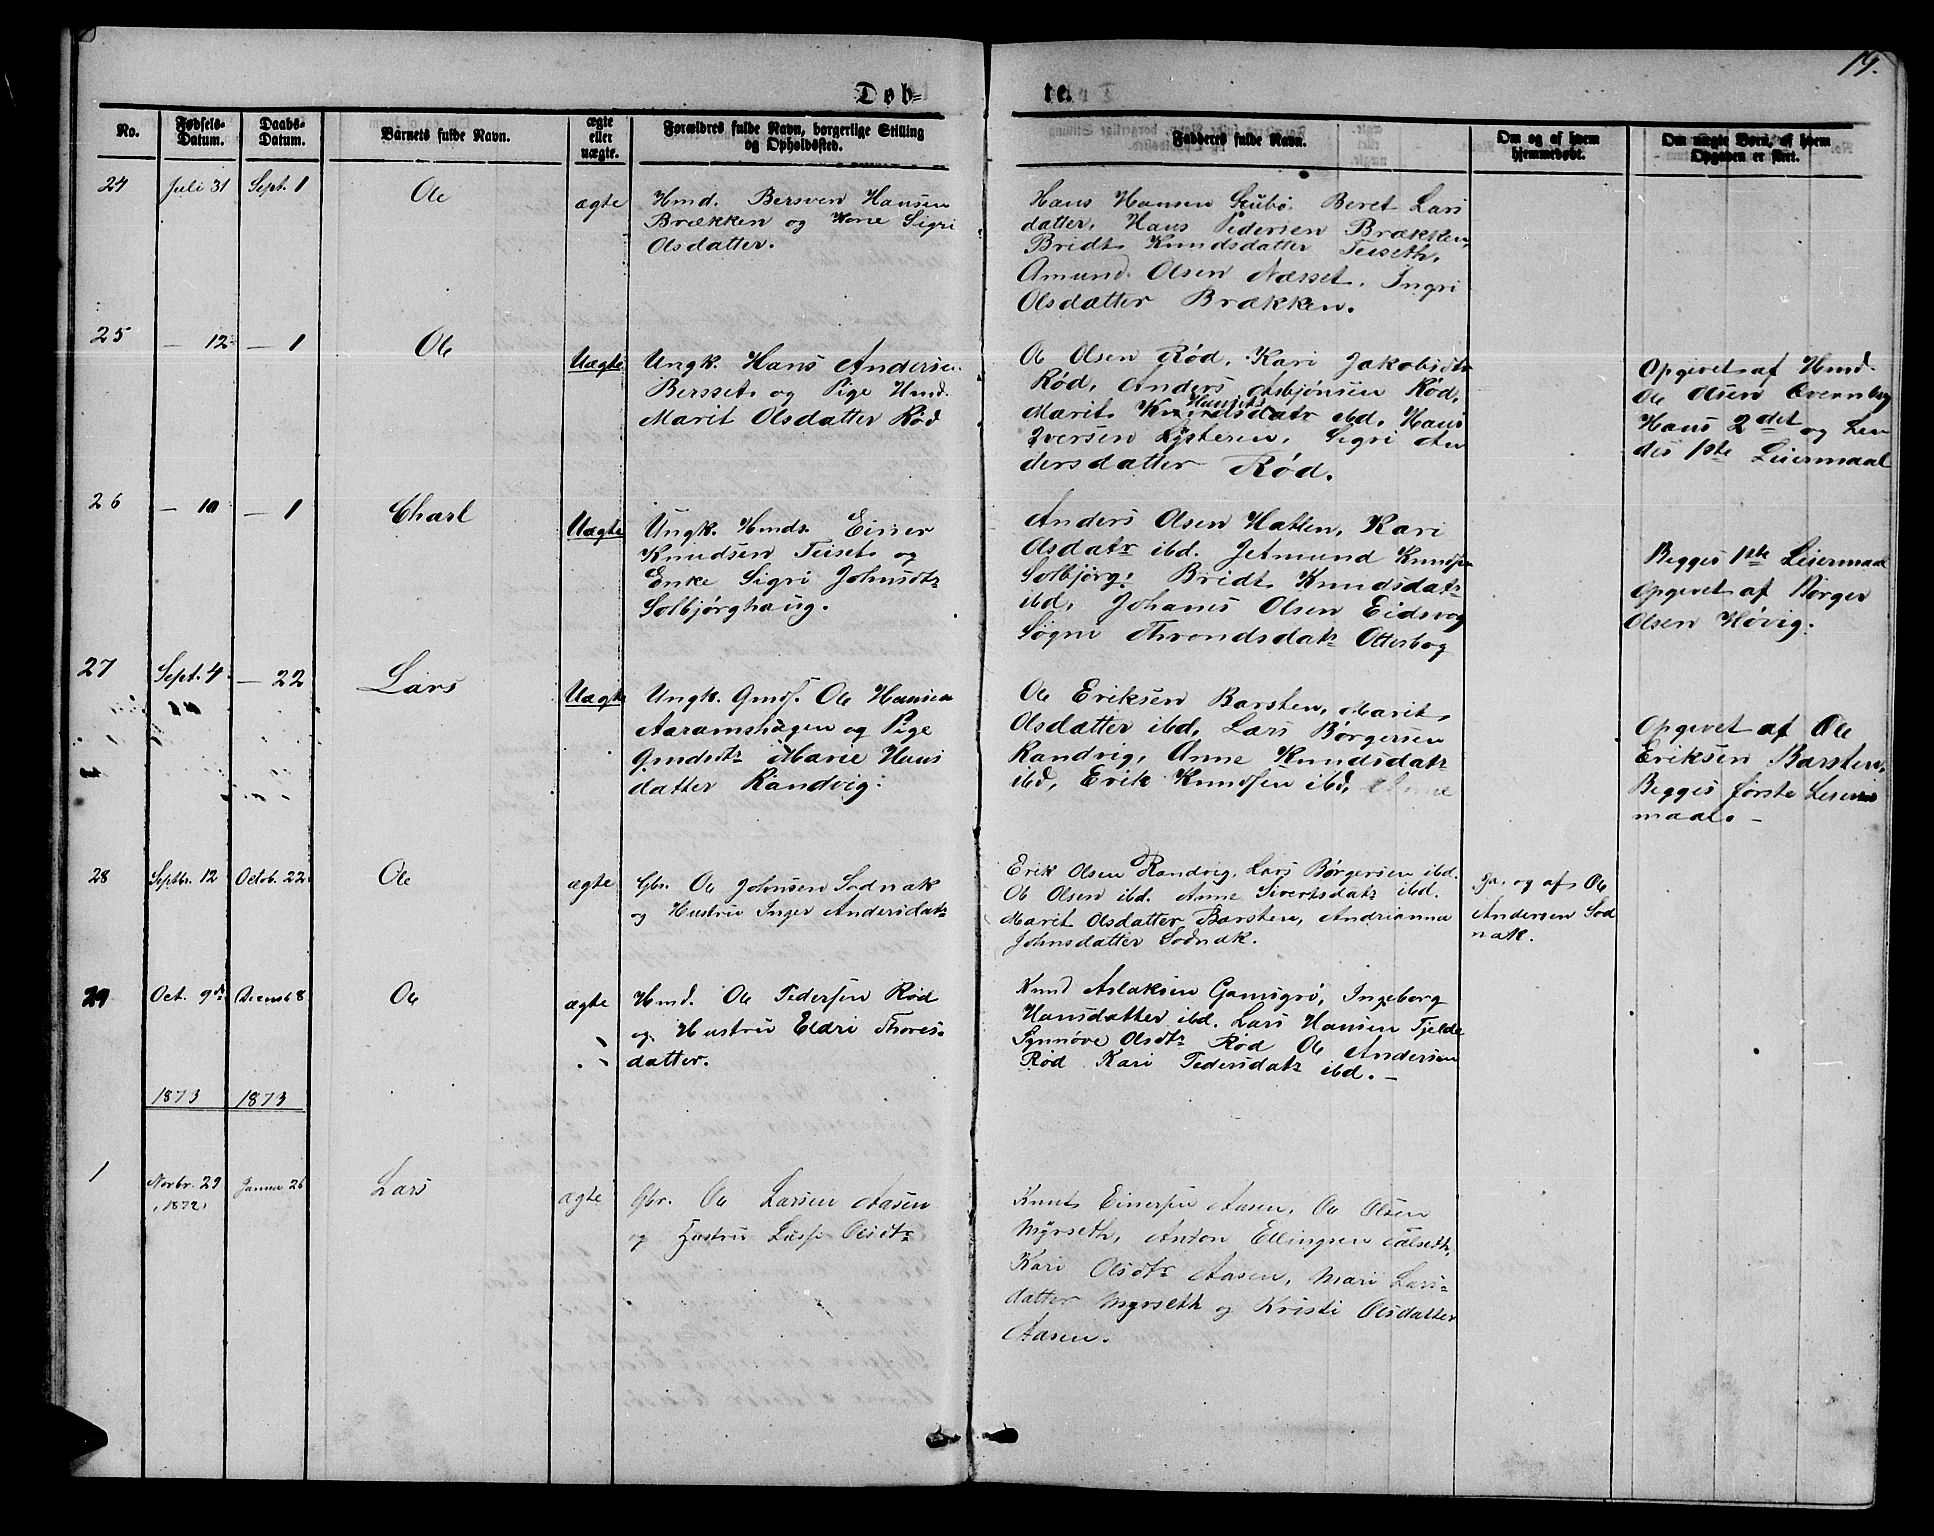 19.
Døb-
te.
No.
Fødsels-
Datum.
Daabs-
Datum.
Barnets fulde Navn.
ægte
eller
uægte.
Forældres fulde Navn, borgerlige Stilling
og Opholdssted.
Fadderes fulde Navn.
Om og af hvem
hjemmedøbt.
Om uægte Børn, af hvem
Opgaven er skeet.
24
Juli 31
Sept. 1
Ole
ægte
Hmd. Bersven Hansen
Brækken og Kone Sigri
Olsdatter.
Hans Hansen Stubø, Beret Lars
datter, Hans Pedersen Brækken,
Bridt Knudsdatter Teiseth,
Amund Olsen Næsset, Ingri
Olsdatter Brækken.
25
— 12
— 1
Ole
Uægte
Ungk. Hans Andersen
Bersset og Pige Hmd.
Marit Olsdatter Rød
Ole Olsen Rød, Kari Jakobsdtr
Rød, Anders Asbjønsen Rød,
Hansds
Marit Knudsdatr ibd, Hans
Iversen Lysteren, Sigri An
dersdatter Rød.
Opgivet af Hmd.
Ole Olsen
Hans 2det og
des 1ste Leiermaal
26
— 10
— 1
Charl
Uægte
Ungk. Hmds. Einer
Knudsen Teiset og
Enke Sigri Johnsdtr
Solbjørghaug.
Anders Olsen Hatlen, Kari
Olsdatr ibd. Jetmund Knudsen
Solbjørg, Bridt Knudsdatr
ibd, Johanes Olsen Eidsvog
Søgni Throndsdatr Otterbog
Begges 1ste Leiermaal
Opgivet af Børger
Olsen Høvig.
27
Sept. 4
— 22
Lars
Uægte
Ungk. Gmds. Ole Hansen
Aaramshagen og Pige
Gmdsdtr Marie Hans
datter Randvig.
Ole Eriksen Barsten, Marit
Olsdatter ibd, Lars Børgersen
Randvig, Anne Knudsdatr
ibd, Erik Knudsen ibd,
Opgivet af Ole
Eriksen Barsten,
Begges første Leier
maal. —
28
Septbr. 12
Octob. 22
Ole
ægte
Gbr. Ole Johnsen Sodnak
og Hustru Inger Andersdatr
Erik Olsen Randvig, Lars Børgersen ibd.
Ole Olsen ibd. Anne Sivertsdatr ibd.
Marit Olsdatter Barsten, Andrianna
Johnsdatter Sodnak.
Ja, og af Ole
Andersen Sod
nak.
29
Oct. 9de
Decemb 8
Ole
ægte
Hmd. Ole Pedersen Rød
og Hustru Eldri Thores-
datter.
Knud Aslaksen Gamsgrø, Ingeborg
Hansdatter ibd. Lars Hansen Tjelde
Synnøve Olsdtr Rød Ole Andersen
Rød Kari Pedersdatr ibd. —
1873
1873
1
Novbr. 29
1872
Januar 26
Lars
ægte
Gbr. Ole Larsen Aasen
og Hustru Lussi Olsdtr
Knut Einersen Aasen, Ole Olsen
Myrseth, Anton Ellingsen
Kari Olsdtr Aasen, Mari Lars-
datter Myrseth og Kristi Olsdatter
Aasen.